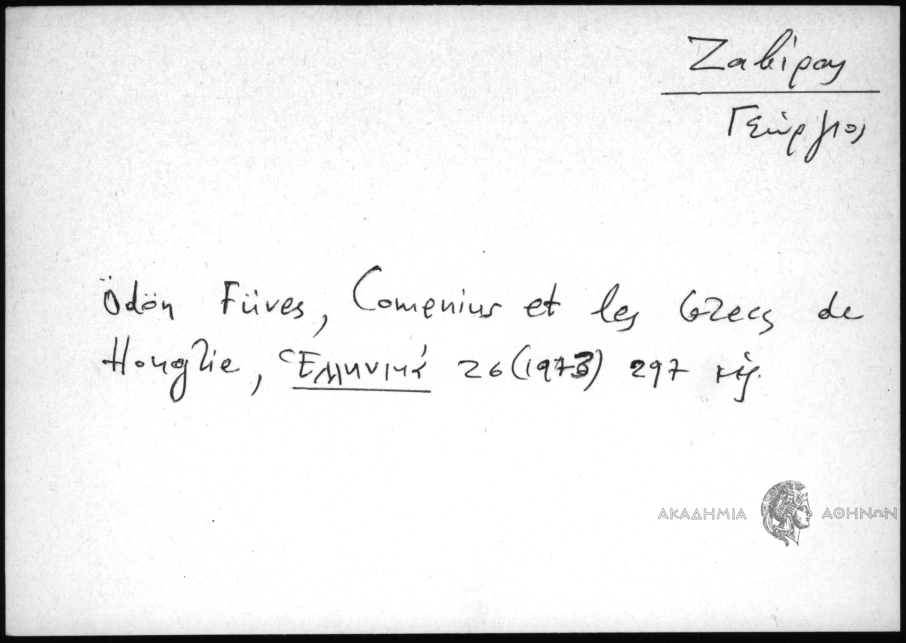 Ζαβίρας
Γεώργιος
Ödön Füves, Comenius et les Grecs de
Hongrie, Ἑλληνικά 26 (1973) 297 κἑξ.
ΑΚΑΔΗΜΙΑ ΑΘΗΝΩΝ